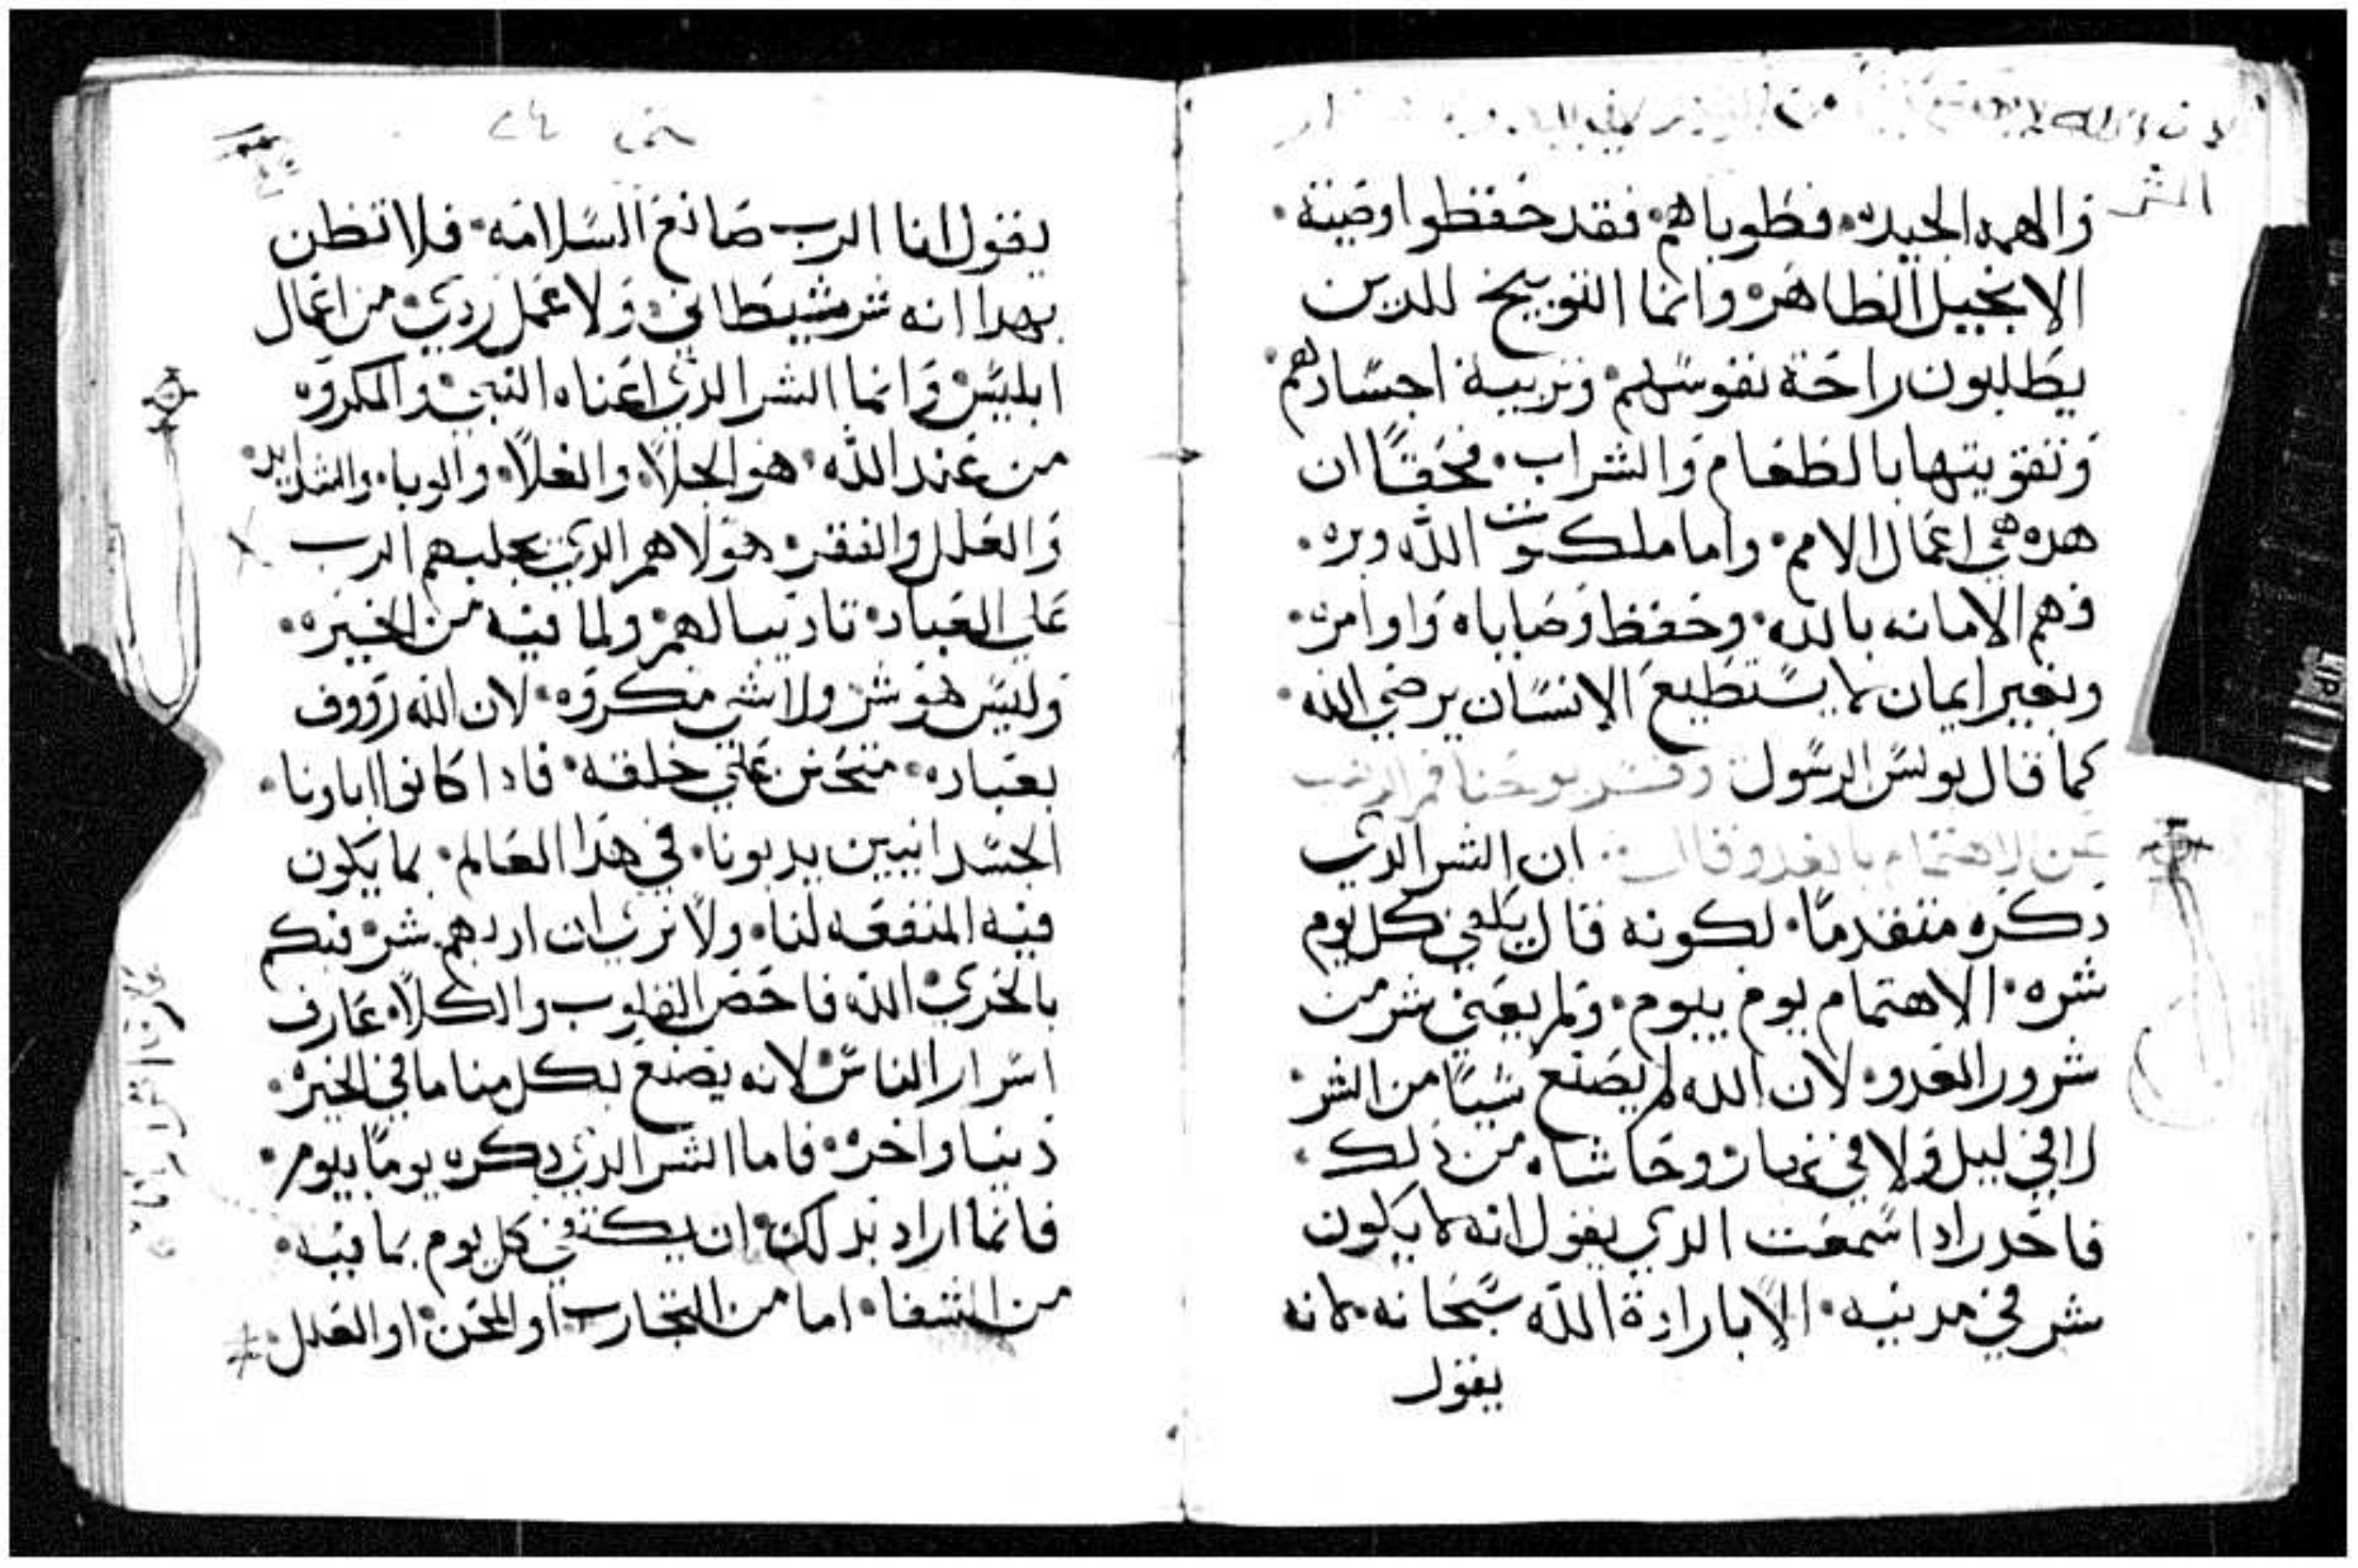 والهمه الجيده۰ فطوباهم۰ فقد حفظوا وصية۰
الانجيل الطاهر۰ وانما التوبيخ للدين
يطلبون راحة نفوسهم۰ وتربية اجسادهم۰
وتقويتها بالطعام والشراب۰ فحقًا ان
هده هي اعمال الامم۰ واما ملكوت الله وبره۰
فهم الامانه بالله۰ وحفظ وصاياه واوامره۰
وبغير ايمان لا يستطيع الانسان يرضي الله۰
كما قال بولس الرسول وفسر يوحنا فم الدهب
عن الاهتمام بالغد وقال ۰ ان الشر الدي
دكره متقدمًا۰ لكونه قال يكفي كل يوم
شره۰ الاهتمام يوم بيوم۰ ولم يعني شر من
شرور العدو۰ لان الله لم يصنع شيًا من الشر۰
لا في ليل ولا في نهار۰ وحاشاه من دلك۰
فاحدر ادا سمعت الدي يقول انه لا يكون
شر في مدينه۰ الا بارادة الله سبحانه۰ لانه
يقول
الشر
يقول انا الرب صانع السلامه۰ فلا تظن
بهدا انه شر شيطاني۰ ولا عمل ردي۰ من اعمال
ابليس۰ وانما الشر الدي اعناه النبي۰ والمكروه
من عند الله۰ هو الجلا۰ والغلا۰ والوبا۰ والشدايد۰
والعلل والفقر۰ هولاهم الدي يجلبهم الرب
علي العباد۰ تاديبا لهم۰ ولما فيه من الخيره۰
وليس هو شر ولا شي مكروه۰ لان الله رووف
بعباده۰ متحنن علي خلقه۰ فادا كانوا اباونا۰
الجسدانيين يدبونا۰ في هدا العالم۰ بما يكون
فيه المنفعه لنا۰ ولا نري ان ادبهم شر۰ فبكم
بالحري۰ الله فاحص القلوب والكلا۰ عارف
اسرار الناس۰ لانه يصنع بكل منا ما في الخير۰
دنيا واخره۰ فاما الشر الدي دكره يومًا بيوم۰
فانما اراد بدلك۰ ان يكتفي كل يوم بما فيه۰
من الشقا۰ اما من التجارب او المحن۰ او العلل۰